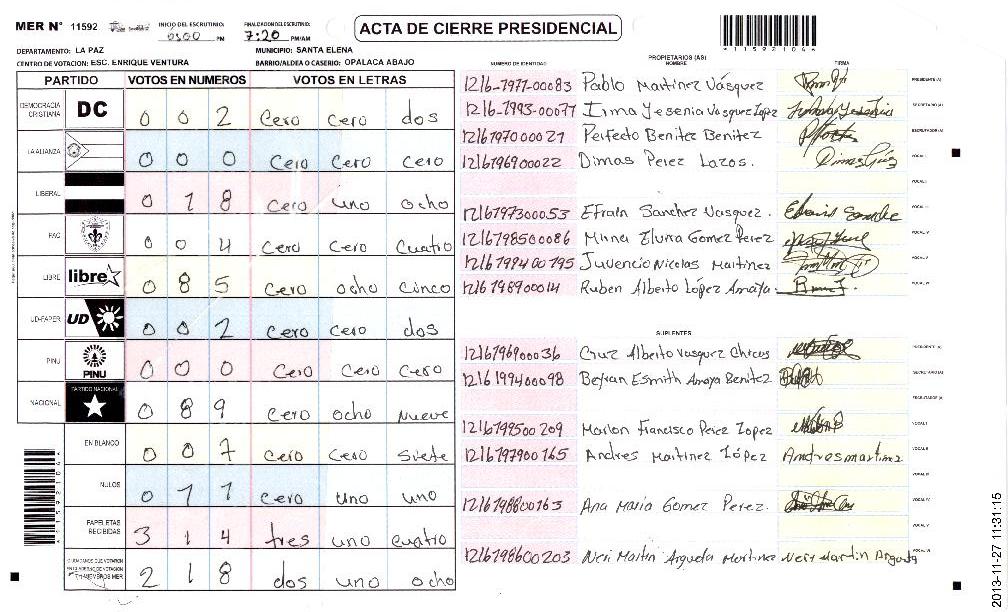 MER N° 11592 INICIO DEL ESCRUTINIO: PM FINALIZACION DEL ESCRUTINIO: 7:20 PM/AM
ACTA DE CIERRE PRESIDENCIAL
DEPARTAMENTO: LA PAZ MUNICIPIO: SANTA ELENA
CENTRO DE VOTACION: ESC. ENRIQUE VENTURA BARRIO/ALDEA O CASERIO: OPALACA ABAJO
PARTIDO VOTOS EN NUMEROS VOTOS EN LETRAS
DEMOCRACIA CRISTIANA DC 0 0 2 Cero Cero dos
LA ALIANZA 0 0 0 Cero Cero Cero
LIBERAL 0 1 8 Cero uno ocho
PAC 0 0 4 Cero Cero Cuatro
LIBRE libre 0 8 5 Cero ocho Cinco
UD-FAPER UD 0 0 2 Cero Cero dos
PINU PINU 0 0 0 Cero Cero Cero
NACIONAL PARTIDO NACIONAL 0 8 9 Cero ocho nueve
EN BLANCO 0 0 7 Cero Cero Siete
NULOS 0 1 1 Cero uno uno
PAPELETAS RECIBIDAS 3 1 4 tres uno cuatro
2 1 8 dos uno ocho
NUMERO DE IDENTIDAD PROPIETARIOS (AS) NOMBRE FIRMA
1216-1977-00083 Pablo Martinez Vásquez PRESIDENTE (A)
1216-1993-00077 Irma Yesenia Vasquez Lopez SECRETARIO (A)
1216197000021 Perfecto Benitez Benitez ESCRUTADOR (A)
1216196900022 Dimas Perez Lazos. VOCAL I
VOCAL II
1216197300053 Efrain Sanchez Vasquez. VOCAL III
1216198500086 Mirna Elvira Gomez Perez VOCAL IV
1216199400195 Juvencio Nicolas Martinez VOCAL V
1216198900014 Ruben Alberto López Amaya. VOCAL VI
SUPLENTES
1216196900036 Cruz Alberto Vasquez Chicas PRESIDENTE (A)
1216199400098 Beyran Esmith Amaya Benitez SECRETARIO (A)
ESCRUTADOR (A)
1216199500209 Marlon Francisco Perez Lopez VOCAL I
1216197900165 Andres Martinez López Andres martinez VOCAL II
VOCAL III
1216198800163 Ana Maria Gomez Perez. VOCAL IV
VOCAL V
1216198600203 Neri Martin Argueta Martinez Neri Martin Argueta VOCAL VI
2013-11-27 11:31:15